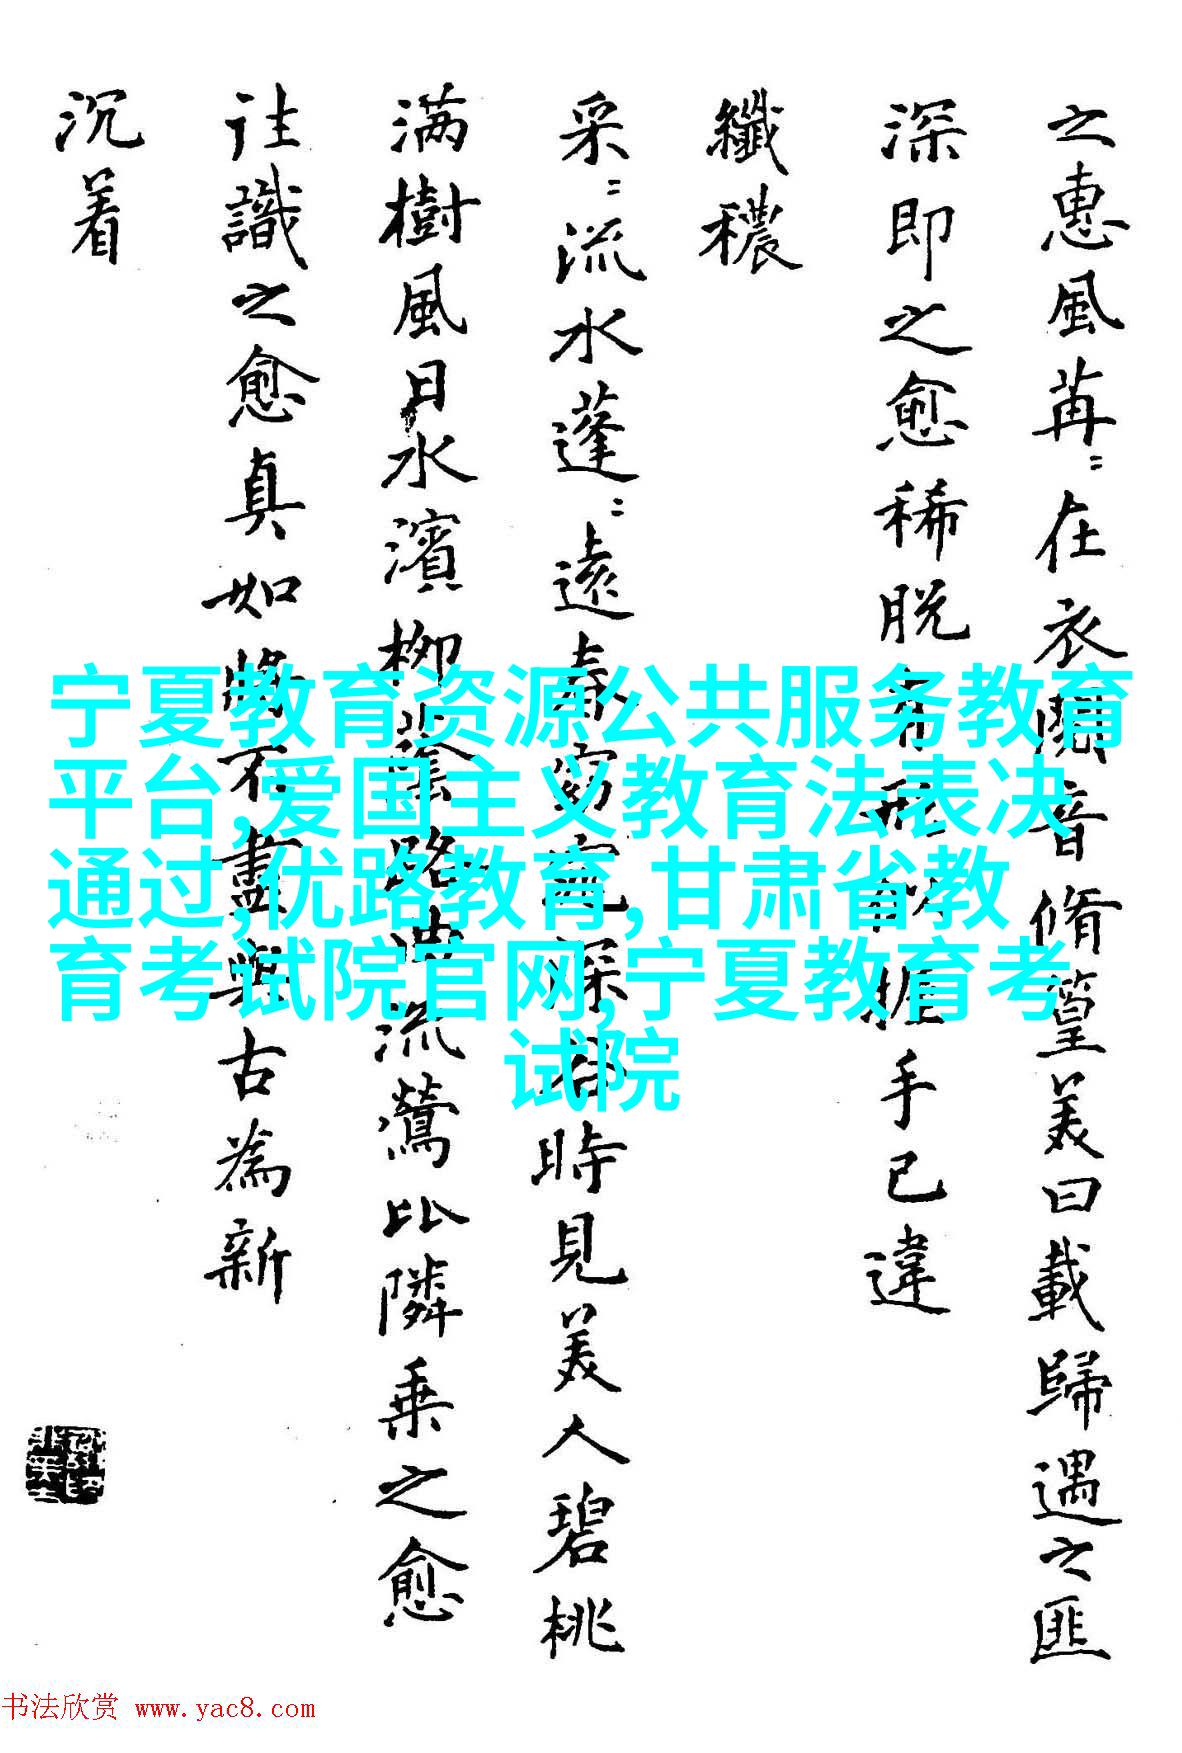 之惠風苒〻在衣閱音脩篁美曰載歸遇之匪
深即之愈稀脫有形似握手已違
纖穠
采〻流水蓬〻遠春窈窕深谷時見美人碧桃
滿樹風日水濱柳蔭路曲流鶯比隣乘之愈
往識之愈真如將不盡與古為新
沉着
宁夏教育资源公共服务教育
平台,爱国主义教育法表决
通过,优路教育,甘肃省教
育考试院官网,宁夏教育考
试院
书法欣赏 www.yac8.com